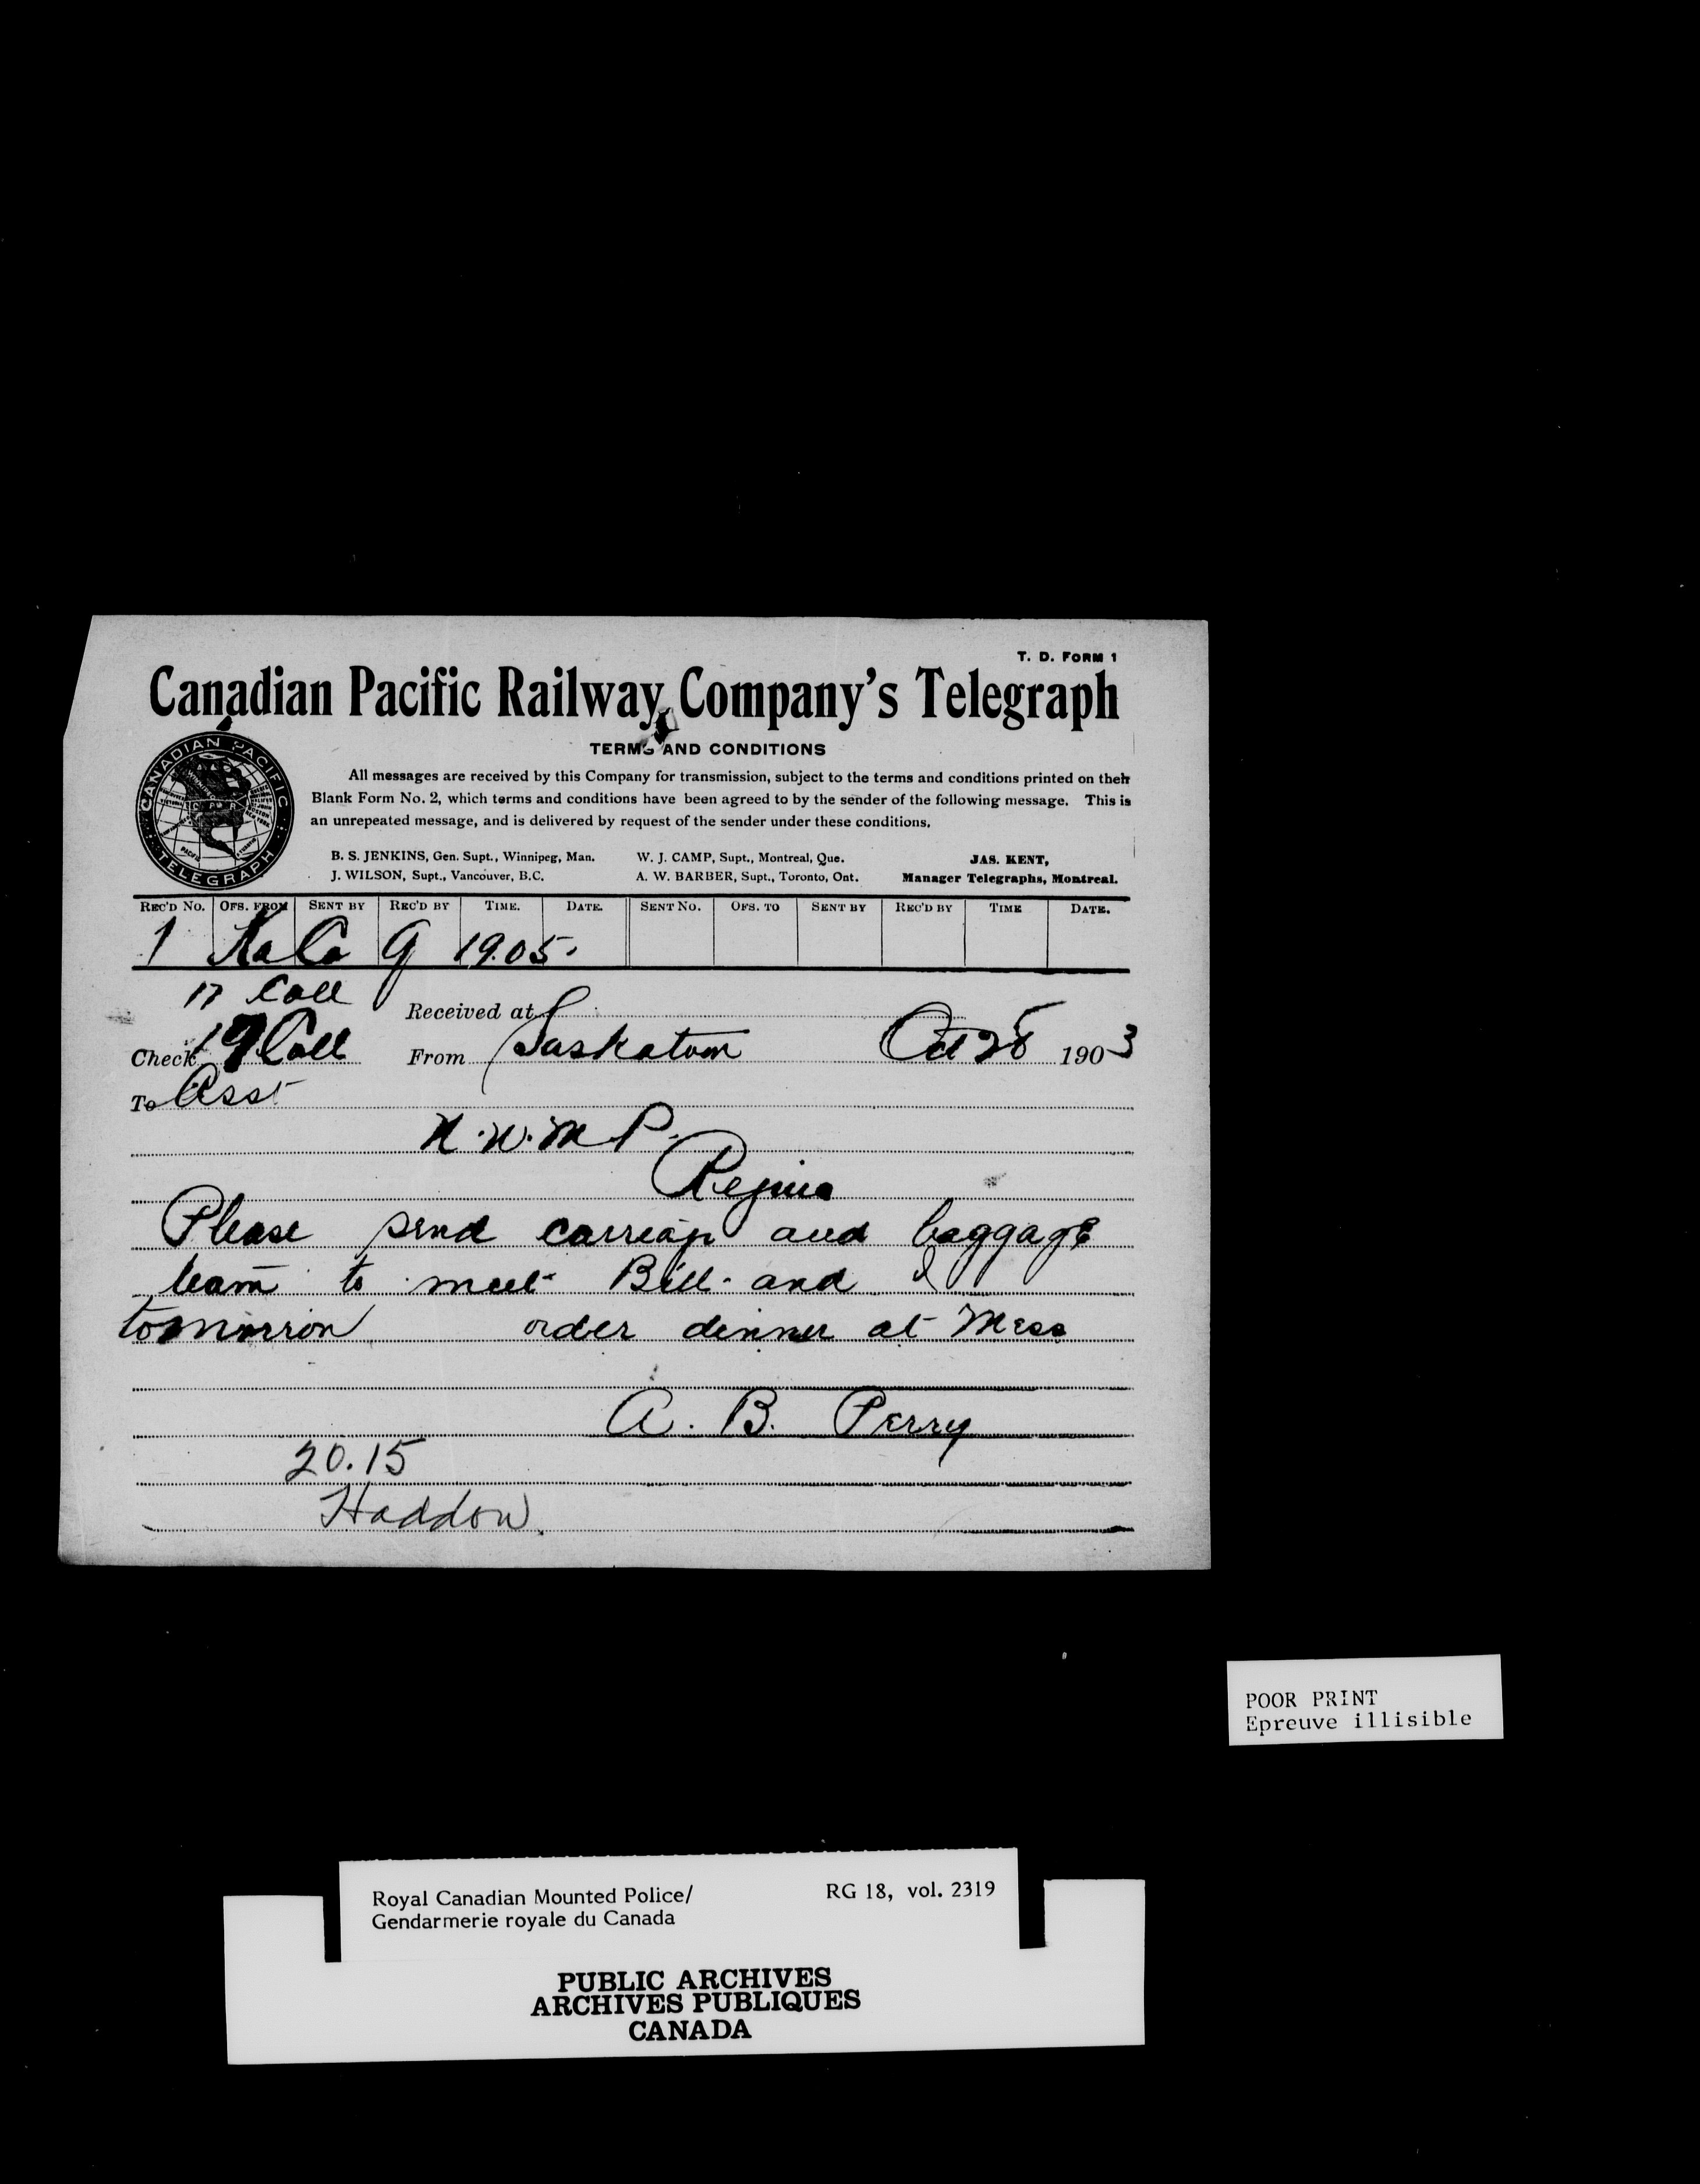 T. D. FORM 1
Canadian Pacific Railway Company's Telegraph
TERMS AND CONDITIONS
All messages are received by this Company for transmission, subject to the terms and conditions printed on their
Blank Form No. 2, which terms and conditions have been agreed to by the sender of the following message. This is
an unrepeated message, and is delivered by request of the sender under these conditions.
B. S. JENKINS, Gen. Supt., Winnipeg, Man. W. J. CAMP, Supt., Montreal, Que. JAS. KENT,
J. WILSON, Supt., Vancouver, B.C. A. W. BARBER, Supt., Toronto, Ont. Manager Telegraphs, Montreal.
CANADIAN PACIFIC
TELEGRAPH
REC'D NO. OFS. FROM SENT BY REC'D BY TIME. DATE. SENT NO. OFS. TO SENT BY REC'D BY TIME DATE.
1 Ka Co G 19.05.
17 Coll
Received at
Check 19 Coll From Saskatoon Oct 28 1903
To Asst
N.W.M.P.
Regina
Please send carriage and baggage
team to meet Bill and I
tomorrow order dinner at Mess
A. B. Perry
20.15
Haddow.
POOR PRINT
Epreuve illisible
Royal Canadian Mounted Police/ RG 18, vol. 2319
Gendarmerie royale du Canada
PUBLIC ARCHIVES
ARCHIVES PUBLIQUES
CANADA